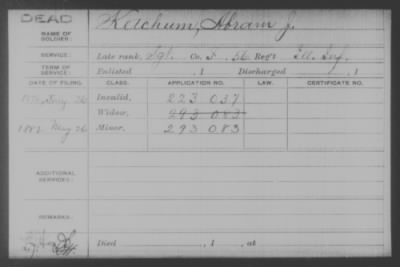 DEAD
NAME OF SOLDIER: Ketchum, Abram J.
SERVICE: Late rank, Sgt. Co. F. 56 Reg't Ill. Inf.
TERM OF SERVICE: Enlisted , 1 Discharged , 1
DATE OF FILING. CLASS. APPLICATION NO. LAW. CERTIFICATE NO.
Invalid, 223 037
Widow, 293 083
1882 May 26 Minor, 293 083
ADDITIONAL SERVICES:
REMARKS:
Died , 1 , at